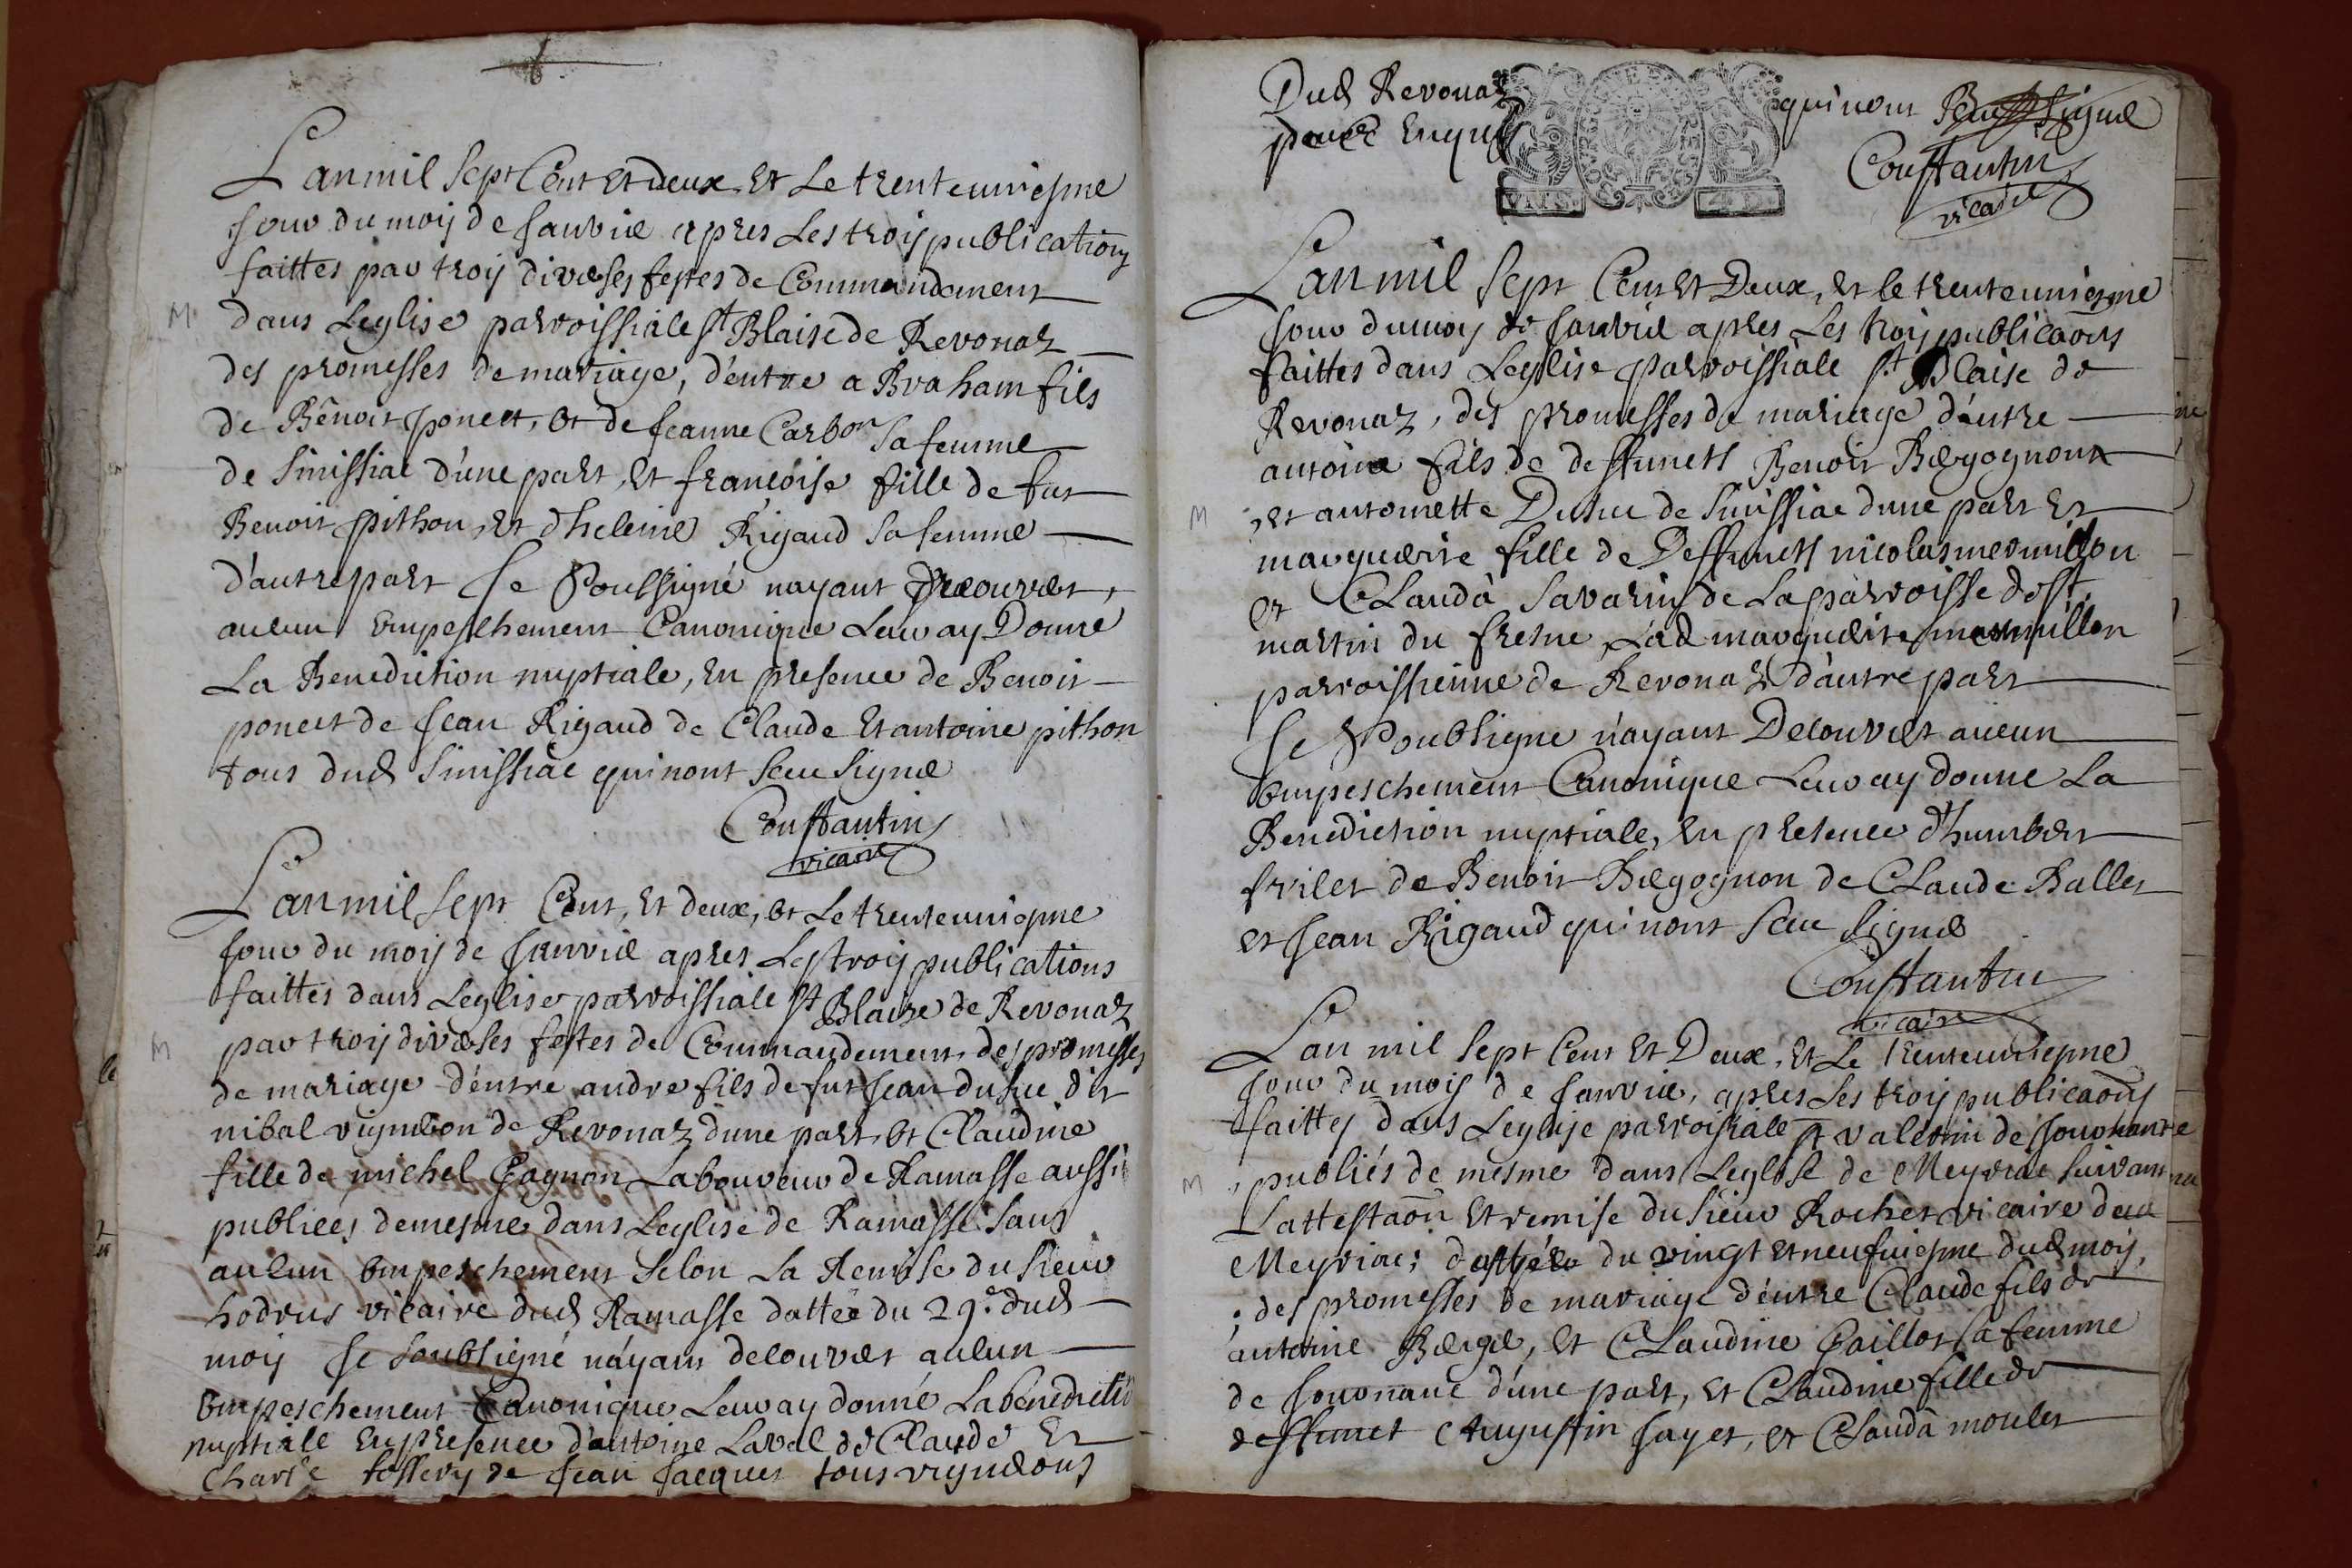 Lan mil sept Cent et deux, et Le trenteuniesme
jour du mois de janvier apres Les trois publications
faittes par trois diverses festes de Commandement
M
dans Leglise parroissiale st Blaise de Revonaz
des promesses de mariage, d'entre aBraham fils
de Benoit poncet, et de jeanne Carbon sa femme
de Simissiac d'une part, et francoise fille de fut
Benoit pithon, et d'heleine Rigaud sa femme
d'autre part Je Soussigné nayant
aucun empeschement Canonique Leur ay Donne
La Benediction nuptiale, en presence de Benoit
poncet de jean Rigaud de Claude et antoine pithon
tous dud Simissiac qui nont sceu signe
Constantin
vicaire
Lan mil sept Cent, et deux, et Le trenteuniesme
jour du mois de janvier apres Les trois publications
faittes dans Leglise parroissiale st Blaise de Revonaz
M
par trois diverses festes de Commandement, des promesses
de mariage d'entre andre fils de fut jean dusuc dit
nibal vigneron de Revonaz dune part, et Claudine
fille de michel Gagnon Laboureur de Ramasse aussi
publiees demesme dans Leglise de Ramasse sans
aucun empeschement selon La Remise du sieur
hodrus vicaire dud Ramasse dattée du 29e dud
mois Je Soubsigné náyant decouvert aucun
empeschement Canonique Leur ay donné La benediction
nuptiale en presence d'antoine Laval de Claude et
Charle de jean jacques tous vignerons
Dud Revonaz
pour enquis
qui nont sceu signe
Constantin
vicaire
Lan mil sept Cent et Deux, et le trenteuniesme
jour du mois de janvier apres Les trois publicaons
faittes dans Leglise parroissiale st Blaise de
Revonaz, des promesses de mariage d'entre
antoine fils de deffuncts Benoit Bergognon
M
et antoinette Dusuc de Simissiac dune part et
marguerite fille de Deffuncts nicolas mermillon
et CLauda Savarin de La parroisse de st
martin du fresne Lad marguerite mermillon
parroissienne de Revonaz d'autre part
Je Soubsigne n'ayant Decouvert aucun
empeschement Canonique Leur ay donne La
Benediction nuptiale, en presence d'humbert
frilet de Benoit Bergognon de CLaude Ballet
et jean Rigaud qui nont sceu signe
Constantin
vicaire
Lan mil sept Cent et Deux, et Le trenteuniesme
jour du mois de janvier, apres Les trois publicaons
faittes dans Leglise parroissiale st valentin de journans
M
publiés de mesme dans Leglise de Meyriac suivant
Lattestaon et remise du sieur Rochet vicaire dud
Meyriac; du vingt et neufuiesme dud mois,
des promesses de mariage d'entre Claude fils de
antoine Berger, et CLaudine Caillot sa femme
de jouonanc d'une part, et Claudine fille de
deffunct Augustin jayet, et CLauda moulet